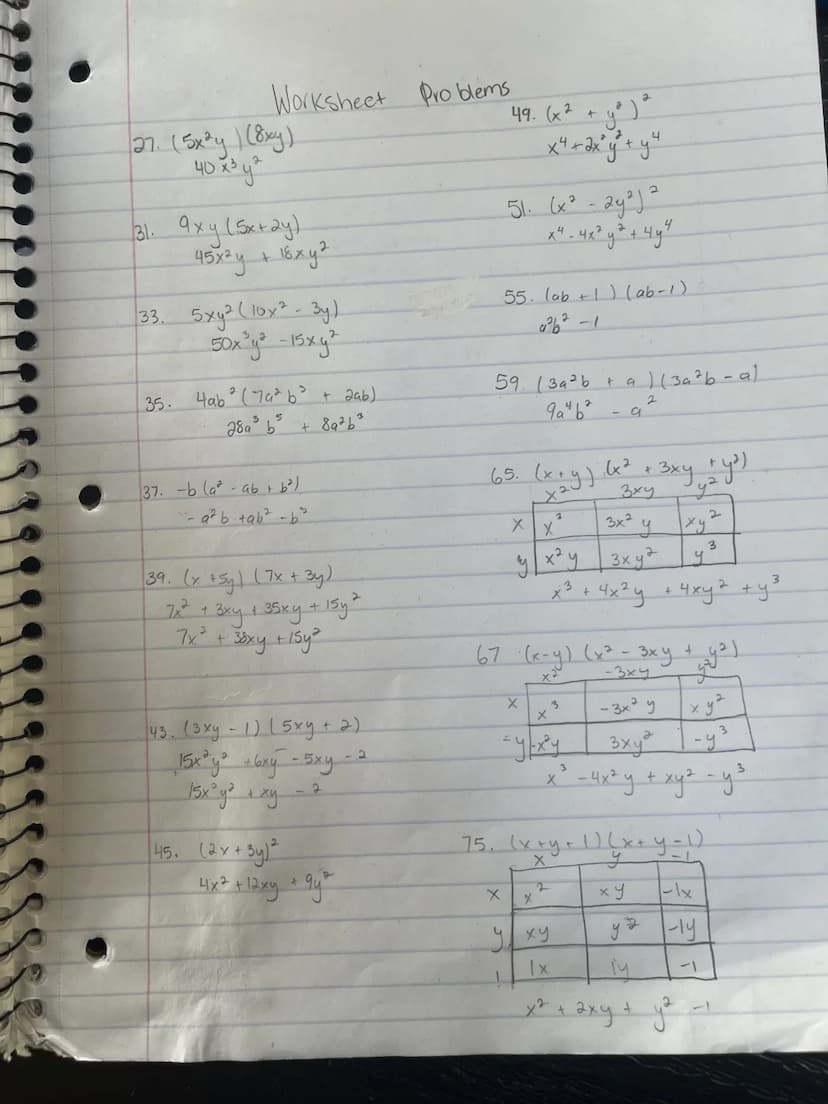 Worksheet Problems
27. (5x²y)(8xy)
40x³y²
31. 9xy(5x+2y)
45x²y + 18xy²
33. 5xy²(10x² - 3y)
50x³y² - 15xy²
35. 4ab²(7a²b³ + 2ab)
28a³b⁵ + 8a²b³
37. -b(a² - ab + b²)
- a²b + ab² - b³
39. (x + 5y)(7x + 3y)
7x² + 3xy + 35xy + 15y²
7x² + 38xy + 15y²
43. (3xy - 1)(5xy + 2)
15x²y² + 6xy - 5xy - 2
15x²y² + xy - 2
45. (2x + 3y)²
4x² + 12xy + 9y²
49. (x² + y²)²
x⁴ + 2x²y² + y⁴
51. (x² - 2y²)²
x⁴ - 4x²y² + 4y⁴
55. (ab + 1)(ab - 1)
a²b² - 1
59 (3a²b + a)(3a²b - a)
9a⁴b² - a²
65. (x + y)(x² + 3xy + y²)
x² 3xy y²
x x³ 3x²y xy²
y x²y 3xy² y³
x³ + 4x²y + 4xy² + y³
67 (x - y)(x² - 3xy + y²)
x² -3xy y²
x x³ -3x²y xy²
-y -x²y 3xy² -y³
x³ - 4x²y + xy² - y³
75. (x + y + 1)(x + y - 1)
x y -1
x x² xy -1x
y xy y² -1y
1 1x 1y -1
x² + 2xy + y² - 1